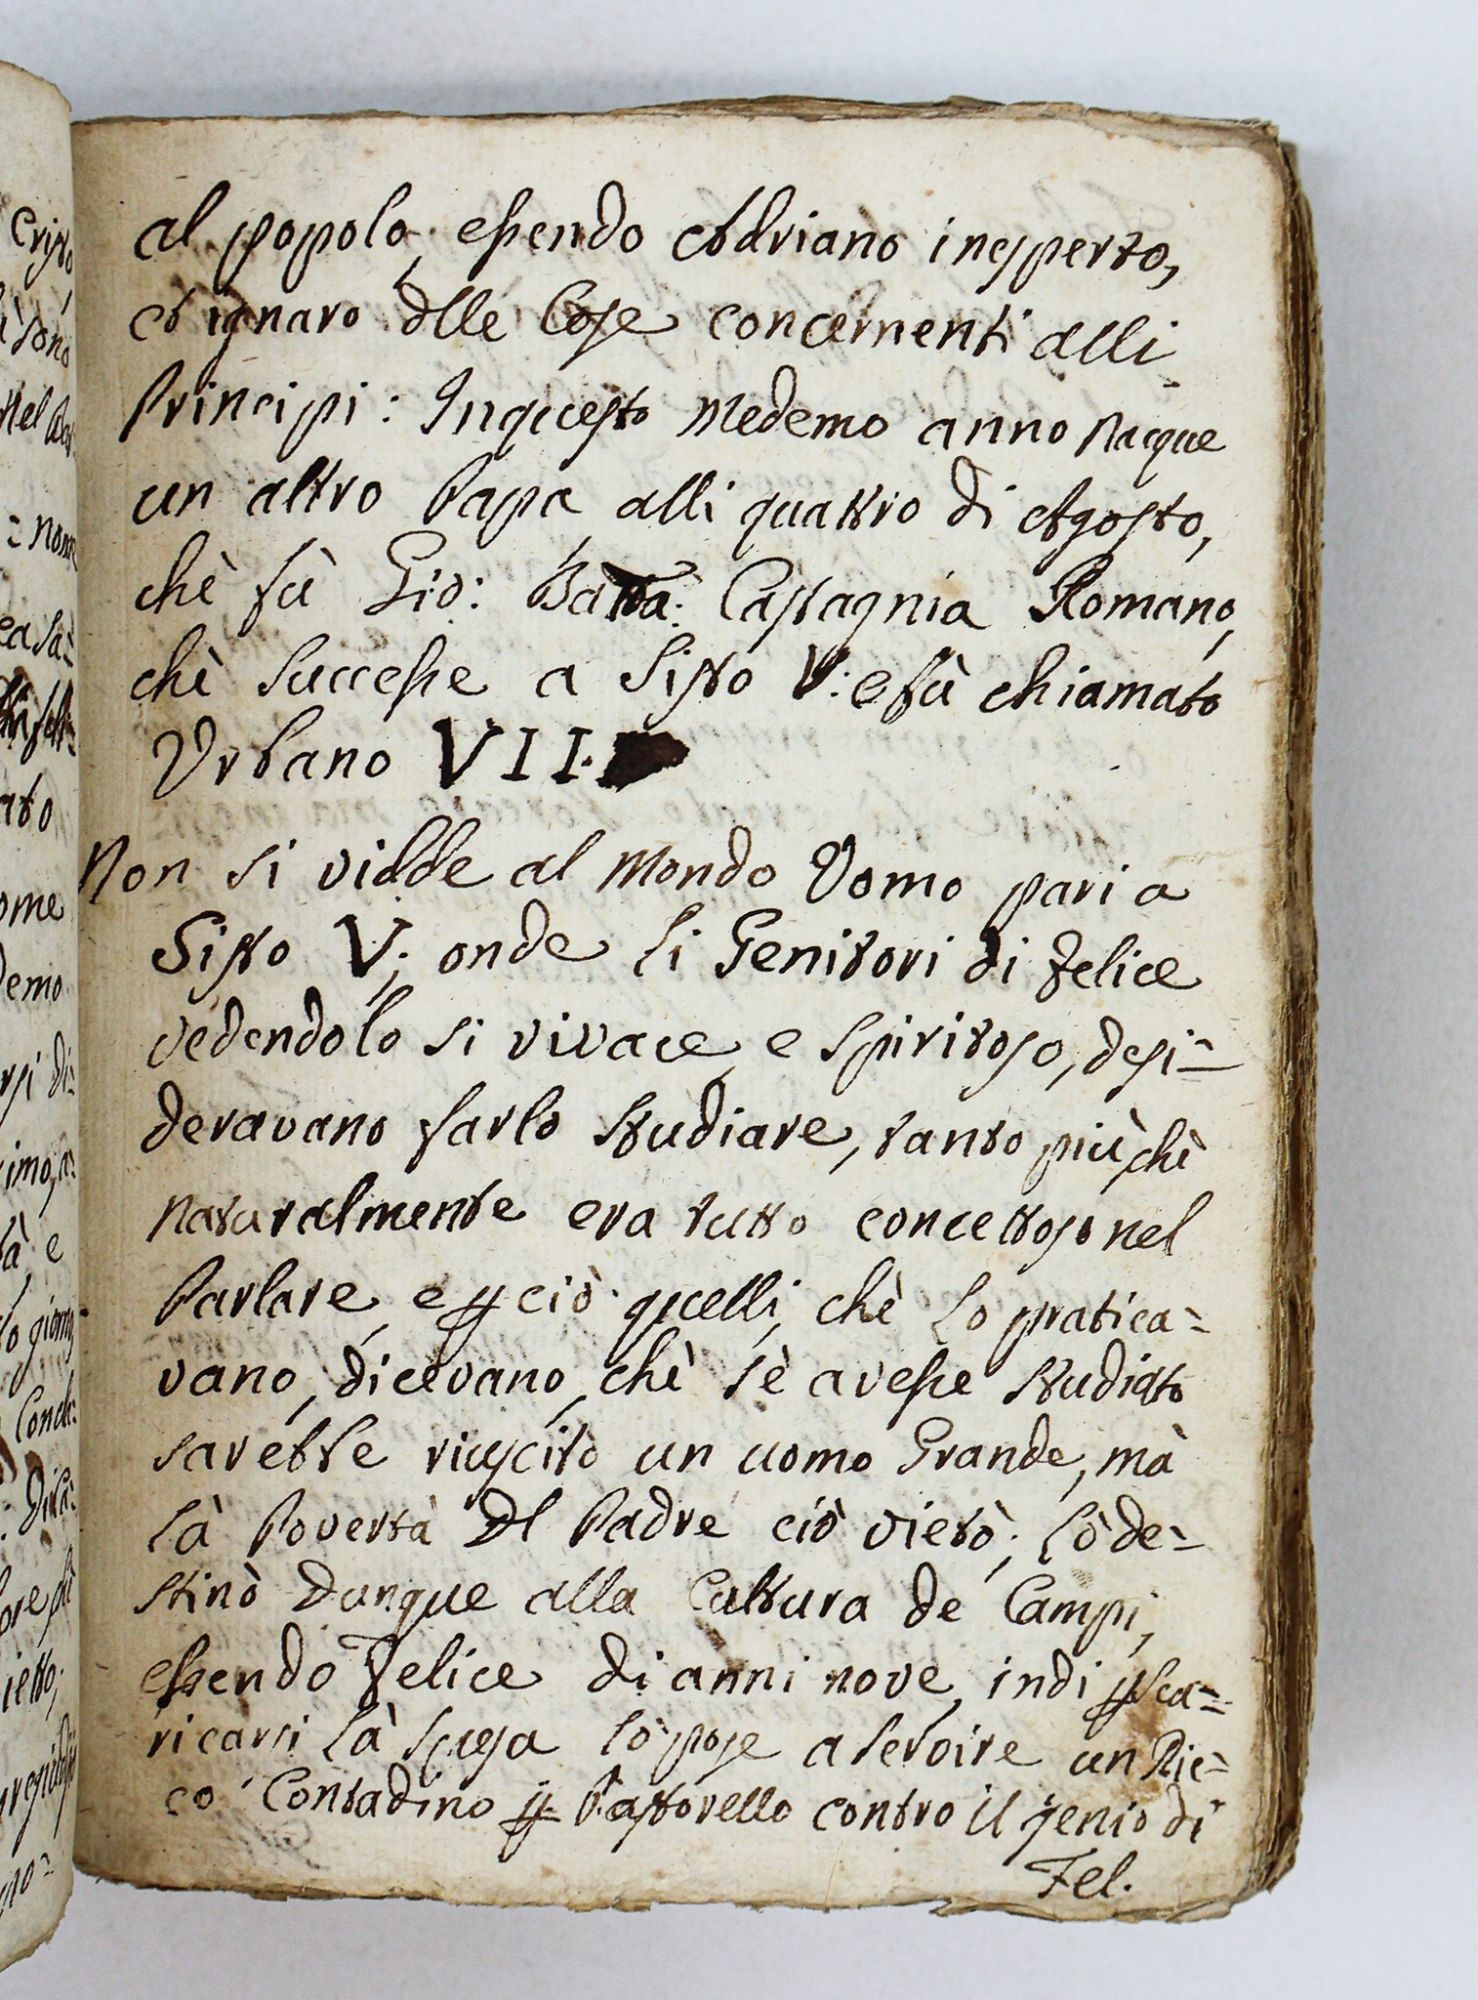 al popolo, essendo Adriano inesperto,
et ignaro dlle Cose concernenti alli
Principi: In questo medemo anno nacque
un altro Papa alli quattro di Agosto,
chè fù Gio: Batta: Castagnia Romano,
chè successe a Sisto V: e fù chiamato
Urbano VII.
Non si vidde al mondo Uomo pari a
Sisto V; onde li Genitori di Felice
vedendolo si vivace, e spiritoso, desi=
deravano farlo studiare, tanto più, chè
naturalmente era tutto concettoso nel
Parlare, e p ciò quelli, chè lo pratica=
vano, dicevano, chè sè avesse studiato
sarebbe riuscito un uomo Grande, mà
là Povertà dl Padre ciò vietò; lò de=
stinò dunque alla Cultura de Campi,
essendo Felice di anni nove, indi p sca=
ricarsi là spesa lò pose a servire un Ric=
co Contadino p Pastorello contro il genio di
Fel.
Cristo,
sono
nel
= nom
ato
ome
demo
di=
imo, a=
tà e
lo giorno